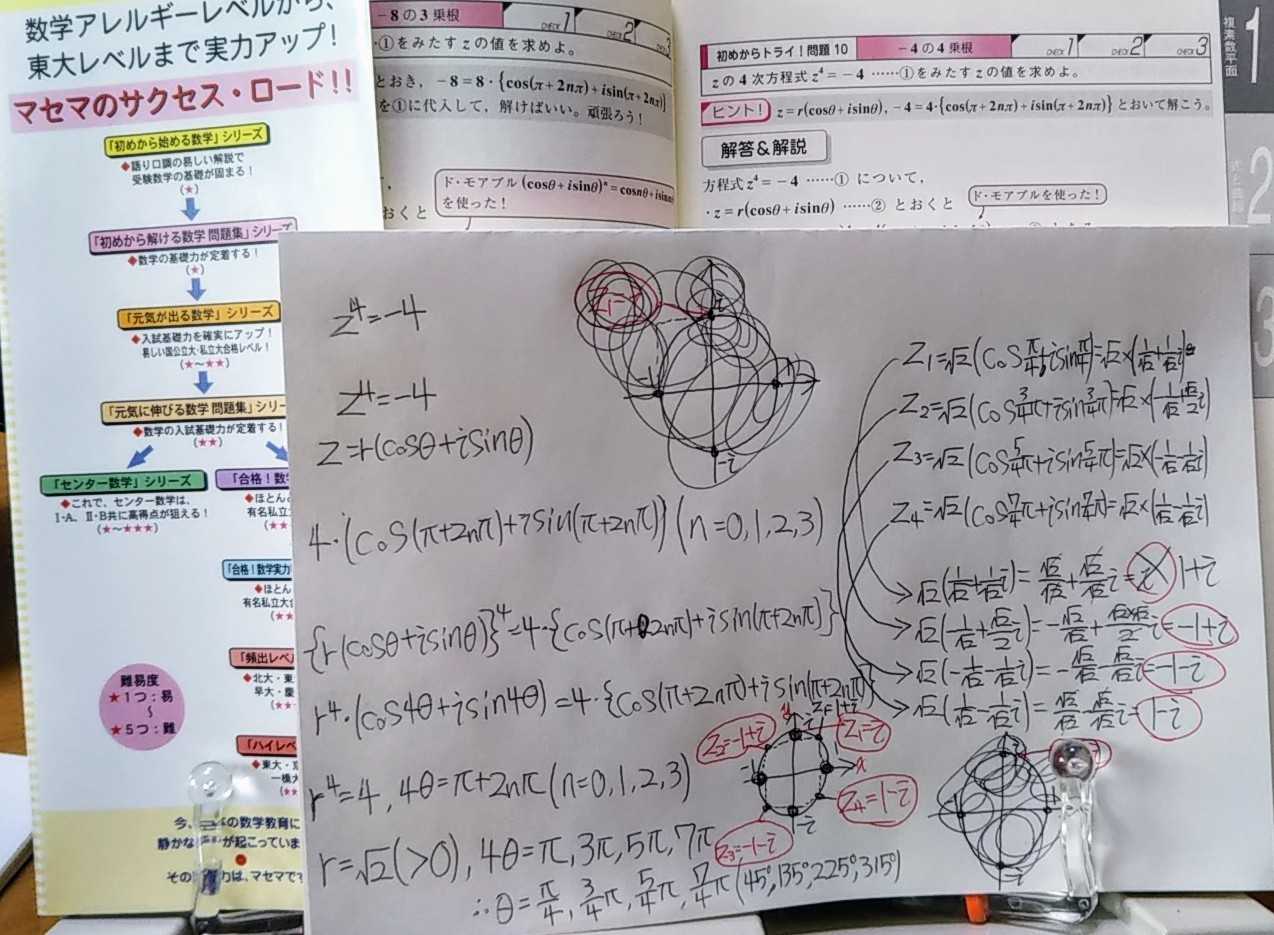 数学アレルギーレベルから、
東大レベルまで実力アップ!
マセマのサクセス・ロード!!
「初めから始める数学」シリーズ
◆語り口調の易しい解説で
受験数学の基礎が固まる!
(★)
「初めから解ける数学 問題集」シリーズ
◆数学の基礎力が定着する!
(★)
「元気が出る数学」シリーズ
◆入試基礎力を確実にアップ!
易しい国公立大・私立大合格レベル!
(★〜★★)
「元気に伸びる数学 問題集」シリー
◆数学の入試基礎力が定着する!
(★★)
「センター数学」シリーズ
◆これで、センター数学は、
I・A、II・B共に高得点が狙える!
(★〜★★★)
「合格!数
◆ほとん
有名私立大
(★★
「合格!数学実力
◆ほとん
有名私立大
(★★
「頻出レベ
◆北大・東
早大・慶
(★★
「ハイレベ
◆東大・
一橋大
(★★
難易度
★1つ:易
〜
★5つ:難
の数学教育に
静かな
が起こっていま
その
は、マセマで
−8の3乗根
CHECK 1
CHECK 2
CHECK 3
・①をみたすzの値を求めよ。
とおき、−8=8・{cos(π+2nπ)+isin(π+2nπ)}
を①に代入して、解けばいい。頑張ろう!
ド・モアブル (cosθ+isinθ)ⁿ=cosnθ+isinn
を使った!
おくと
初めからトライ!問題10
−4の4乗根
CHECK 1
CHECK 2
CHECK 3
zの4次方程式 z⁴=−4 ……①をみたすzの値を求めよ。
ヒント! z=r(cosθ+isinθ), −4=4・{cos(π+2nπ)+isin(π+2nπ)} とおいて解こう。
解答&解説
方程式 z⁴=−4 ……① について,
・z=r(cosθ+isinθ) ……② とおくと
ド・モアブルを使った!
1
複素数平面
2
3
z⁴=-4
z⁴=-4
z=r(cosθ+isinθ)
4・{cos(π+2nπ)+isin(π+2nπ)} (n=0,1,2,3)
{r(cosθ+isinθ)}⁴=4・{cos(π+2nπ)+isin(π+2nπ)}
r⁴・(cos4θ+isin4θ)=4・{cos(π+2nπ)+isin(π+2nπ)}
r⁴=4, 4θ=π+2nπ(n=0,1,2,3)
r=√2(>0), 4θ=π,3π,5π,7π
∴θ=π/4, 3/4π, 5/4π, 7/4π (45°,135°,225°,315°)
i
-1
1
-i
Z₁=√2(cosπ/4+isinπ/4)=√2×(1/√2+1/√2i)
Z₂=√2(cos3/4π+isin3/4π)=√2×(-1/√2+√2/2i)
Z₃=√2(cos5/4π+isin5/4π)=√2×(-1/√2-1/√2i)
Z₄=√2(cos7/4π+isin7/4π)=√2×(1/√2-1/√2i)
√2(1/√2+1/√2i)=√2/√2+√2/√2i= 1+i
√2(-1/√2+√2/2i)=-√2/√2+√2×√2/2i=-1+i
√2(-1/√2-1/√2i)=-√2/√2-√2/√2i=-1-i
√2(1/√2-1/√2i)=√2/√2-√2/√2i=1-i
y
x
Z₁=1+i
Z₁=i
Z₂=-1+i
Z₃=-1-i
Z₄=1-i
i
-i